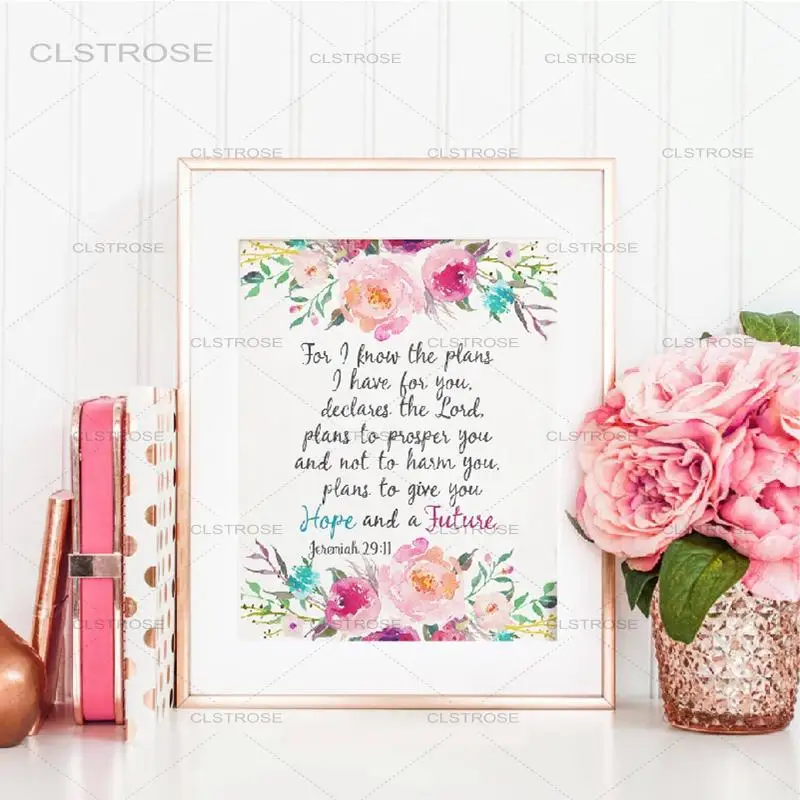 CLSTROSE CLSTROSE CLSTROSE
CLSTROSE CLSTROSE CLSTROSE
CLSTROSE CLSTROSE
For I know the plans
I have for you,
declares the Lord,
plans to prosper you
and not to harm you,
plans to give you
Hope and a Future
Jeremiah 29:11
CLSTROSE CLSTROSE CLSTROSE
CLSTROSE CLSTROSE CLSTROSE
CLSTROSE CLSTROSE CLSTROSE
CLSTROSE CLSTROSE CLSTROSE
CLSTROSE CLSTROSE